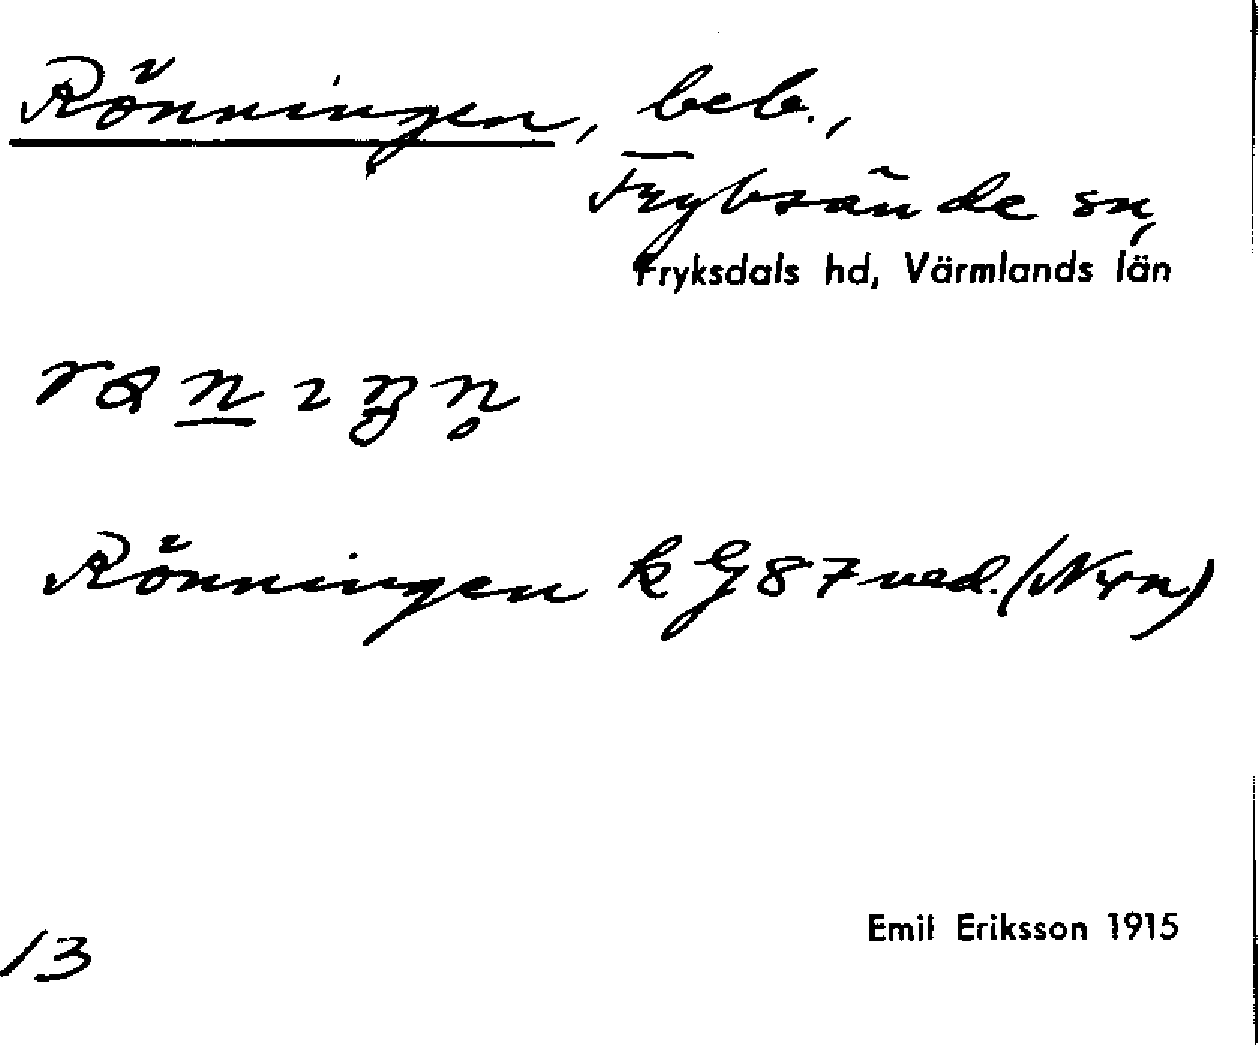 Rönningen, beb.,
Fryksände sn,
Fryksdals hd, Värmlands län
Rönningen k G87ved. (Nyn)
Emil Eriksson 1915
13